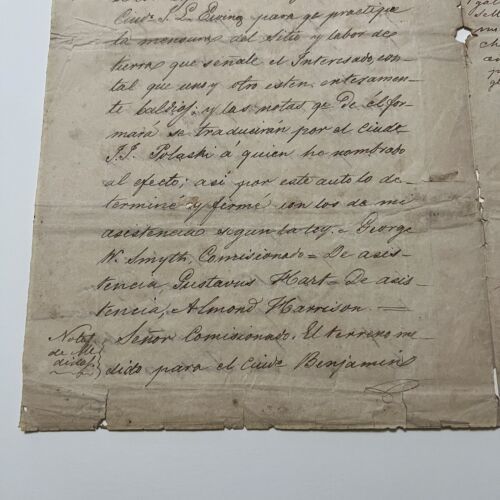 Ciudº J. L. Ewing para qe practique
la mensura del Sitio y labor de
tierra que señale el Interesado, con
tal que uno y otro esten enteramen-
te baldios; y las notas qe De el for-
mara se traducirán por el Ciudº
J. J. Polaski á quien he nombrado
al efecto; asi por este auto lo de-
terminé y firmé con los de mi
asistencia segun la ley. = George
W. Smyth, Comisionado = De asis-
tencia, Gustavus Hart = De asis-
tencia, Almond Harrison. =
Notas de Me didas
Señor Comisionado. El terreno me-
dido para el Ciudº Benjamin